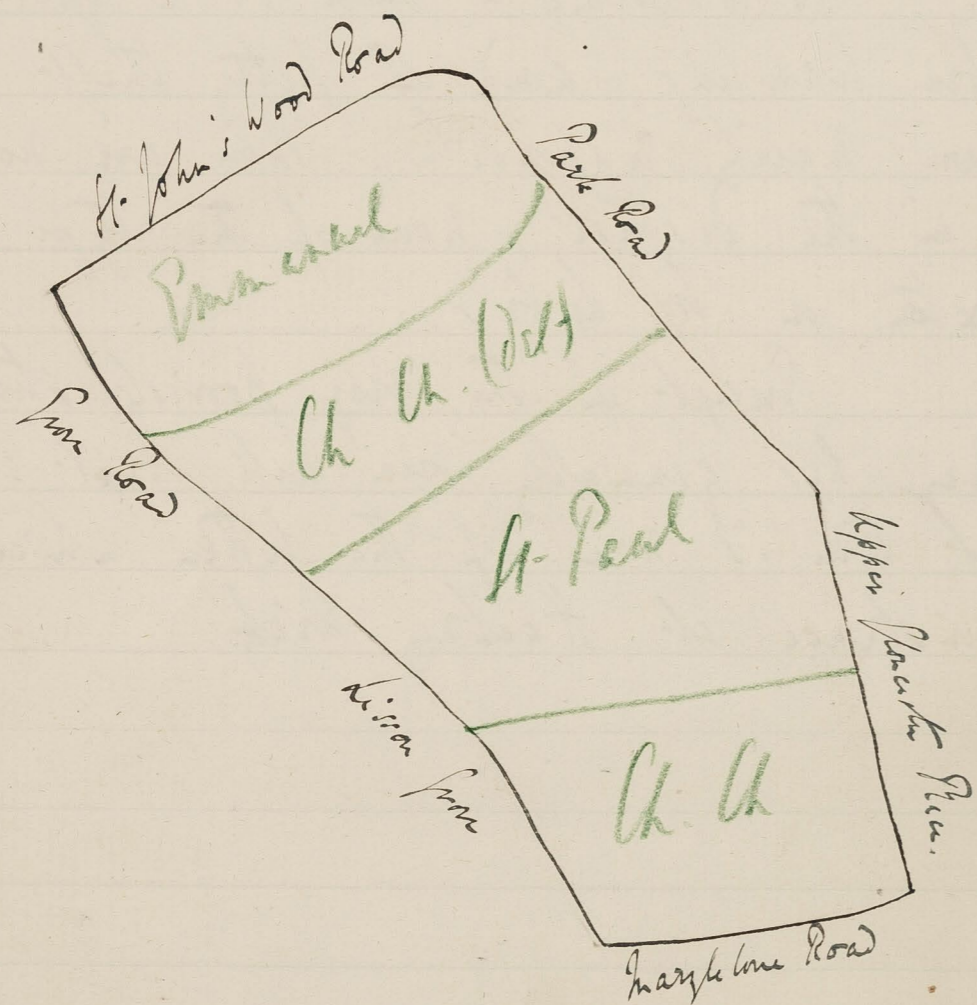 St. John's Wood Road
Park Road
Emmanuel
Ch Ch. (Det)
Grove Road
St. Paul
Upper Gloucester Place.
Lisson Grove
Ch. Ch
Marylebone Road